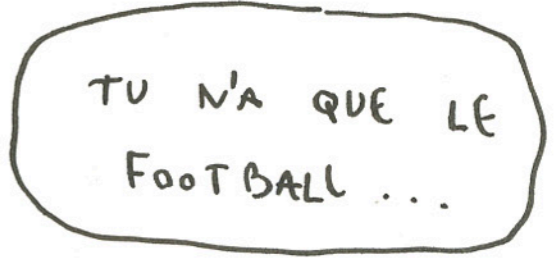 TU N'A QUE LE
FOOTBALL ...